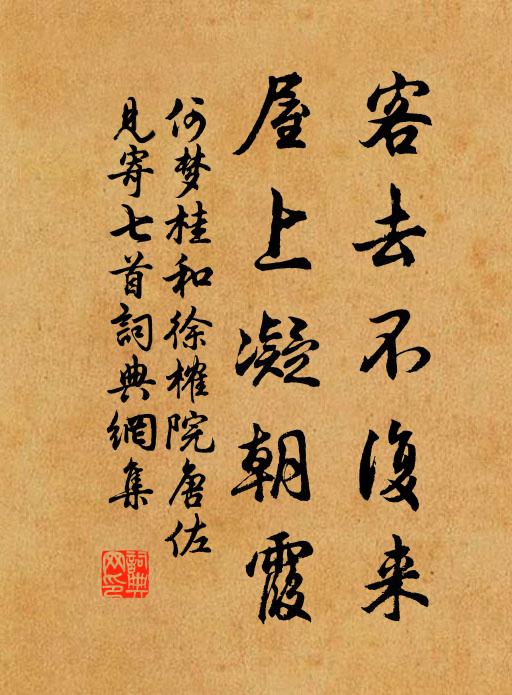 客去不復来
屋上凝朝霞
何梦桂和徐榷院唐佐
見寄七首詞典網集
詞典網印